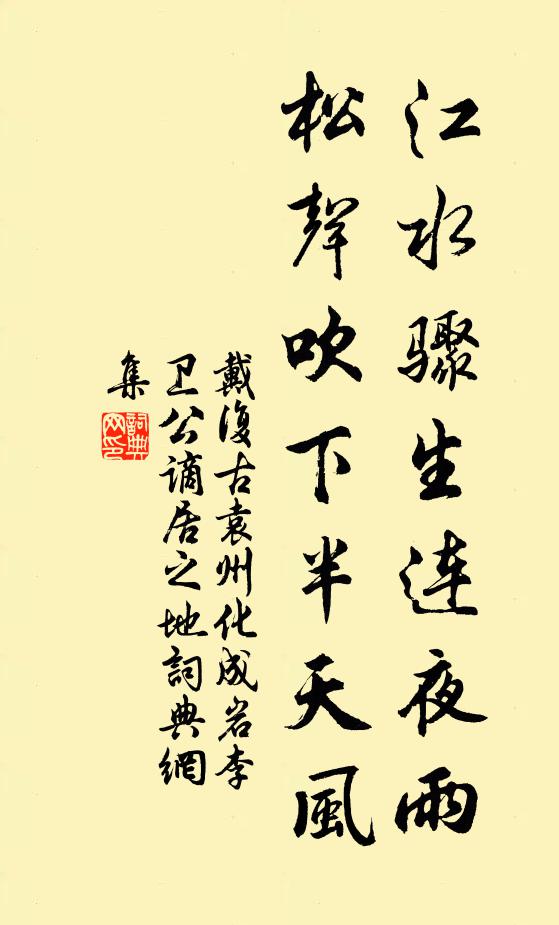 江水驟生連夜雨
松聲吹下半天風
戴復古袁州化成岩李
卫公謫居之地詞典網
集
詞典
网印